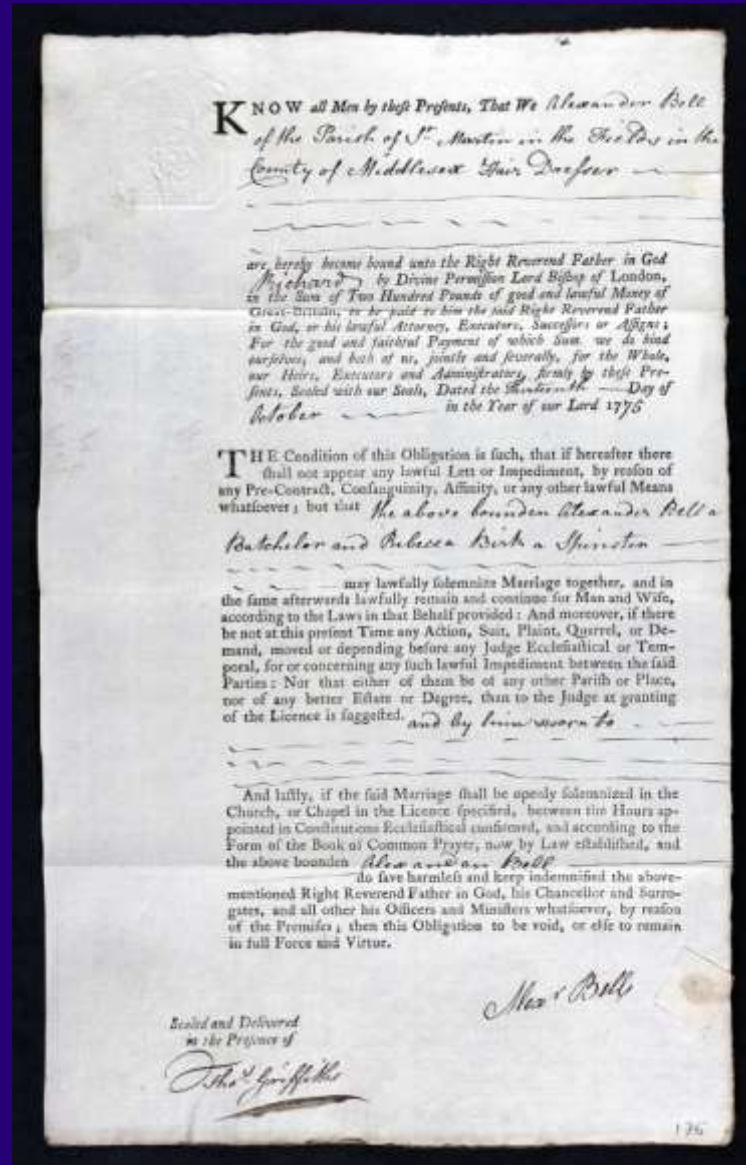 KNOW all Men by these Presents, That We Alexander Bell
of the Parish of St. Martin in the Fields in the
County of Middlesex Hair Dresser
are hereby become bound unto the Right Reverend Father in God
Richard by Divine Permission Lord Bishop of London,
in the Sum of Two Hundred Pounds of good and lawful Money of
Great-Britain, to be paid to him the said Right Reverend Father
in God, or his lawful Attorney, Executors, Successors or Assigns;
For the good and faithful Payment of which Sum we do bind
ourselves, and both of us, jointly and severally, for the Whole,
our Heirs, Executors and Administrators, firmly by these Pre-
sents, Sealed with our Seals, Dated the Thirteenth Day of
October in the Year of our Lord 1775
THE Condition of this Obligation is such, that if hereafter there
shall not appear any lawful Lett or Impediment, by reason of
any Pre-Contract, Consanguinity, Affinity, or any other lawful Means
whatsoever; but that the above bounden Alexander Bell a
Batchelor and Rebecca Birk a Spinster
may lawfully solemnize Marriage together, and in
the same afterwards lawfully remain and continue for Man and Wife,
according to the Laws in that Behalf provided: And moreover, if there
be not at this present Time any Action, Suit, Plaint, Quarrel, or De-
mand, moved or depending before any Judge Ecclesiastical or Tem-
poral, for or concerning any such lawful Impediment between the said
Parties: Nor that either of them be of any other Parish or Place,
nor of any better Estate or Degree, than to the Judge at granting
of the Licence is suggested. and by him sworn to
And lastly, if the said Marriage shall be openly solemnized in the
Church, or Chapel in the Licence specified, between the Hours ap-
pointed in Constitutions Ecclesiastical confirmed, and according to the
Form of the Book of Common Prayer, now by Law established, and
the above bounden Alexander Bell
do save harmless and keep indemnified the above-
mentioned Right Reverend Father in God, his Chancellor and Surro-
gates, and all other his Officers and Ministers whatsoever, by reason
of the Premises; then this Obligation to be void, or else to remain
in full Force and Virtue.
Alexr Bell
Sealed and Delivered
in the Presence of
Thos. Griffiths
176